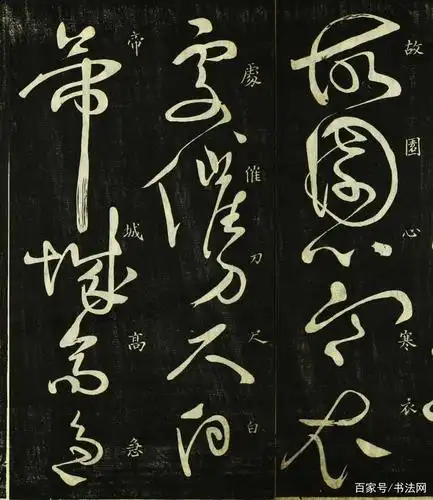 故園心寒衣
故園心寒衣
處催刀尺白
處催刀尺白
帝城高急
帝城高急
百家号/书法网